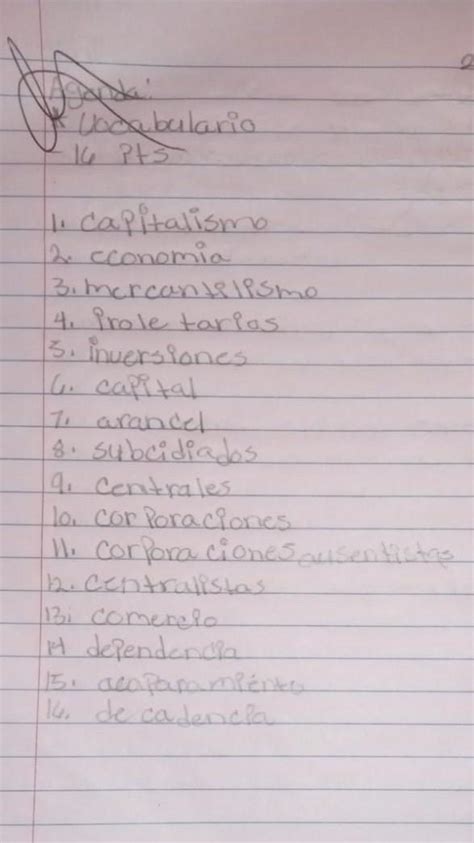 2
Agenda:
* Vocabulario
- 16 Pts
1. capitalismo
2. economia
3. mercantilismo
4. Proletarias
5. inversiones
6. capital
7. arancel
8. subcidiados
9. centrales
10. corporaciones
11. corporaciones ausentistas
12. centralistas
13. comercio
14 dependencia
15. acaparamiento
16. decadencia